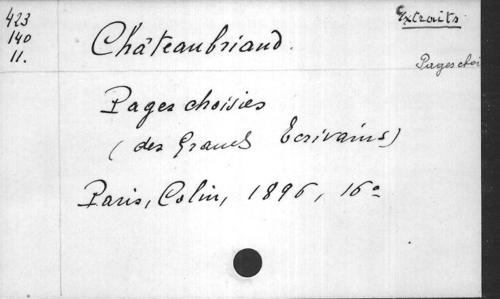 423
140
11.
Extraits
Châteaubriand.
Pages choi
Pages choisies
(des Grands Ecrivains)
Paris, Colin, 1896, 16º